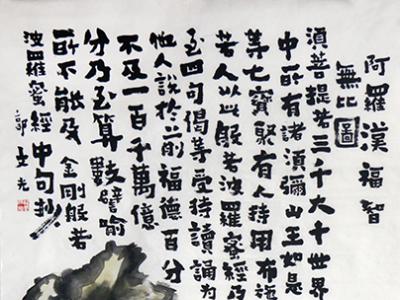 阿羅漢福智
無比圖
須菩提若三千大千世界
中所有諸須彌山王如是
等七寶聚有人持用布施
若人以此般若波羅蜜經乃
至四句偈等受持讀誦為
他人說於前福德百分
不及一百千萬億
分乃至算數譬喻
所不能及 金剛般若
波羅蜜經中句抄